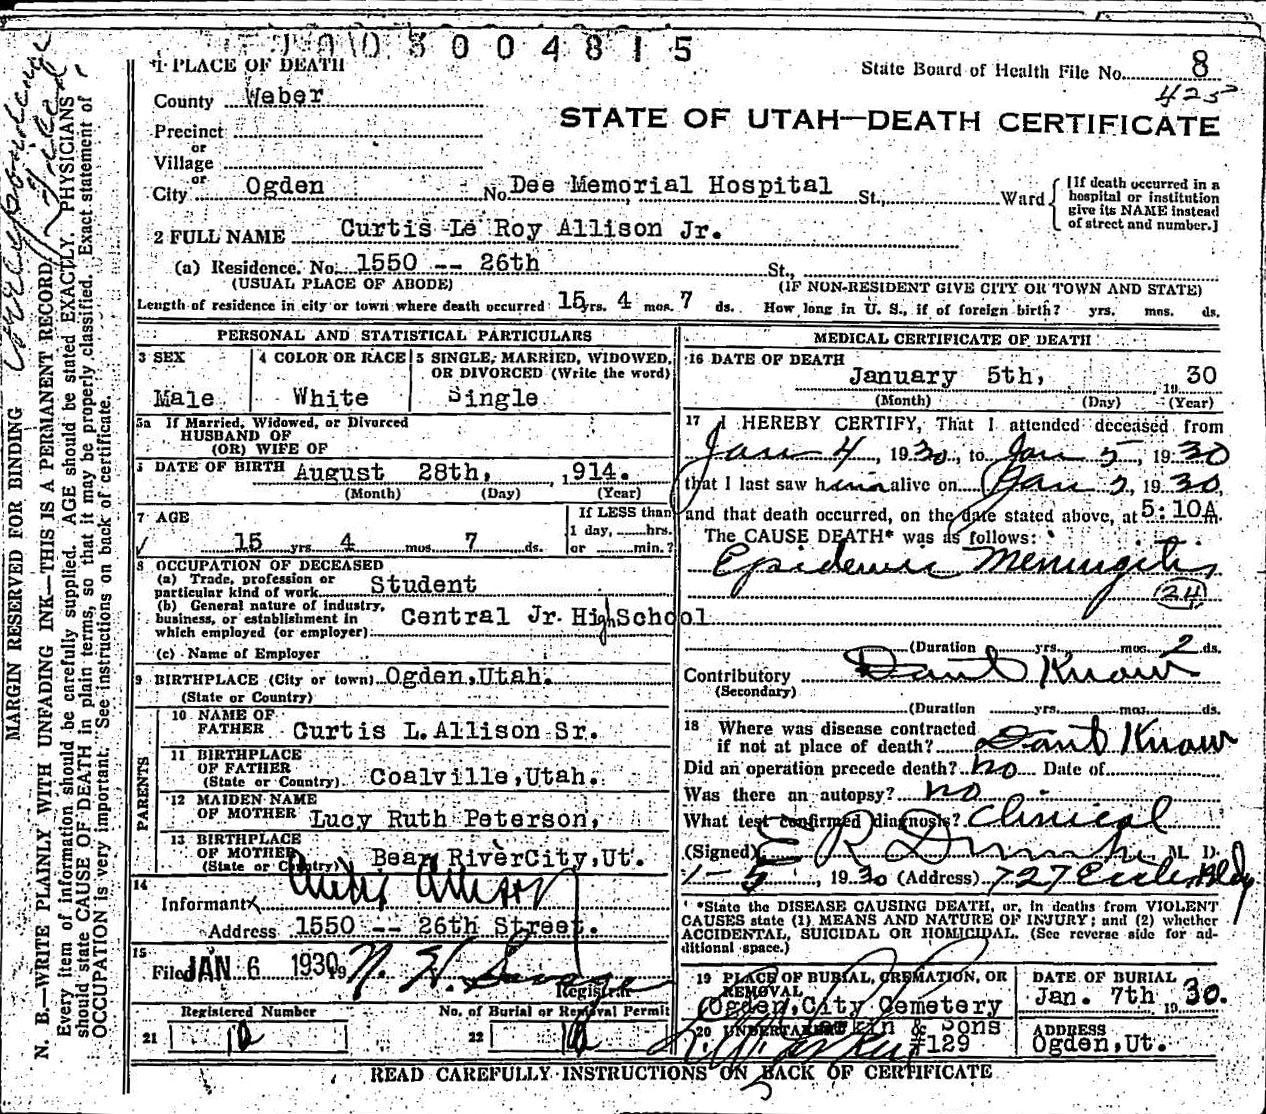 1003004815
1 PLACE OF DEATH
State Board of Health File No. 8
425
County Weber
STATE OF UTAH—DEATH CERTIFICATE
Precinct
or
Village
or
City Ogden No Dee Memorial Hospital St., Ward
[If death occurred in a
hospital or institution
give its NAME instead
of street and number.]
2 FULL NAME Curtis Le Roy Allison Jr.
(a) Residence. No. 1550 -- 26th St.,
(USUAL PLACE OF ABODE) (IF NON-RESIDENT GIVE CITY OR TOWN AND STATE)
Length of residence in city or town where death occurred 15 yrs. 4 mos. 7 ds. How long in U. S., if of foreign birth? yrs. mos. ds.
PERSONAL AND STATISTICAL PARTICULARS
3 SEX
Male
4 COLOR OR RACE
White
5 SINGLE, MARRIED, WIDOWED,
OR DIVORCED (Write the word)
Single
5a If Married, Widowed, or Divorced
HUSBAND OF
(OR) WIFE OF
DATE OF BIRTH August 28th, 1914.
(Month) (Day) (Year)
7 AGE
15 yrs. 4 mos. 7 ds.
If LESS than
1 day, hrs.
or min.?
8 OCCUPATION OF DECEASED
(a) Trade, profession or
particular kind of work Student
(b) General nature of industry,
business, or establishment in
which employed (or employer) Central Jr. High School
(c) Name of Employer
9 BIRTHPLACE (City or town) Ogden, Utah.
(State or Country)
PARENTS
10 NAME OF
FATHER Curtis L. Allison Sr.
11 BIRTHPLACE
OF FATHER
(State or Country) Coalville, Utah.
12 MAIDEN NAME
OF MOTHER Lucy Ruth Peterson,
13 BIRTHPLACE
OF MOTHER
(State or Country) Bear River City, Ut.
14
Informant Curtis Allison
Address 1550 -- 26th Street.
15
Filed JAN 6 1930 19
Registrar
Registered Number
21 10
No. of Burial or Removal Permit
22 10
MEDICAL CERTIFICATE OF DEATH
16 DATE OF DEATH
January 5th, 19 30
(Month) (Day) (Year)
17 I HEREBY CERTIFY, That I attended deceased from
Jan 4, 1930, to Jan 5, 1930
that I last saw him alive on Jan 5, 1930,
and that death occurred, on the date stated above, at 5:10A m.
The CAUSE DEATH* was as follows:
Epidemic Meningitis
(24)
(Duration yrs. mos. 2 ds.
Contributory Dont Know
(Secondary)
(Duration yrs. mos. ds.
18 Where was disease contracted
if not at place of death? Dont Know
Did an operation precede death? no Date of
Was there an autopsy? no
What test confirmed diagnosis? Clinical
(Signed) E R M. D.
1-5, 1930 (Address) 727 Eccles Bldg
*State the DISEASE CAUSING DEATH, or, in deaths from VIOLENT
CAUSES state (1) MEANS AND NATURE OF INJURY; and (2) whether
ACCIDENTAL, SUICIDAL OR HOMICIDAL. (See reverse side for ad-
ditional space.)
19 PLACE OF BURIAL, CREMATION, OR
REMOVAL
Ogden, City Cemetery
DATE OF BURIAL
Jan. 7th 19 30.
20 UNDERTAKER Larkin & Sons
#129
ADDRESS
Ogden, Ut.
READ CAREFULLY INSTRUCTIONS ON BACK OF CERTIFICATE
MARGIN RESERVED FOR BINDING
N. B.—WRITE PLAINLY WITH UNFADING INK—THIS IS A PERMANENT RECORD.
Every item of information should be carefully supplied. AGE should be stated EXACTLY. PHYSICIANS
should state CAUSE OF DEATH in plain terms, so that it may be properly classified. Exact statement of
OCCUPATION is very important. See instructions on back of certificate.